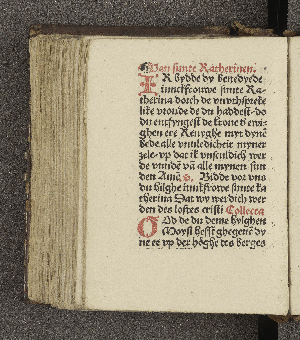 Van sunte Katherinen.
IK bydde dy benedyede
iunckfrouwe sunte Ka-
therina dorch de vnvthspreke
like vroude de du haddest do
du entfyngest de krone der ewi-
ghen ere Reynyghe myn dyne
bede alle vnuledicheit myner
zele vp dat ik vnschuldich wer
de vunden van allen mynen sun
den Amen. Bidde vor vns
du hilghe iunkfrowe sunte ka
therina Dat wy werdich wer
den des loftes cristi Collecta
God de du deme hylghen
Moysi hefft ghegeuen dy
ne ee vp der höghe des berges